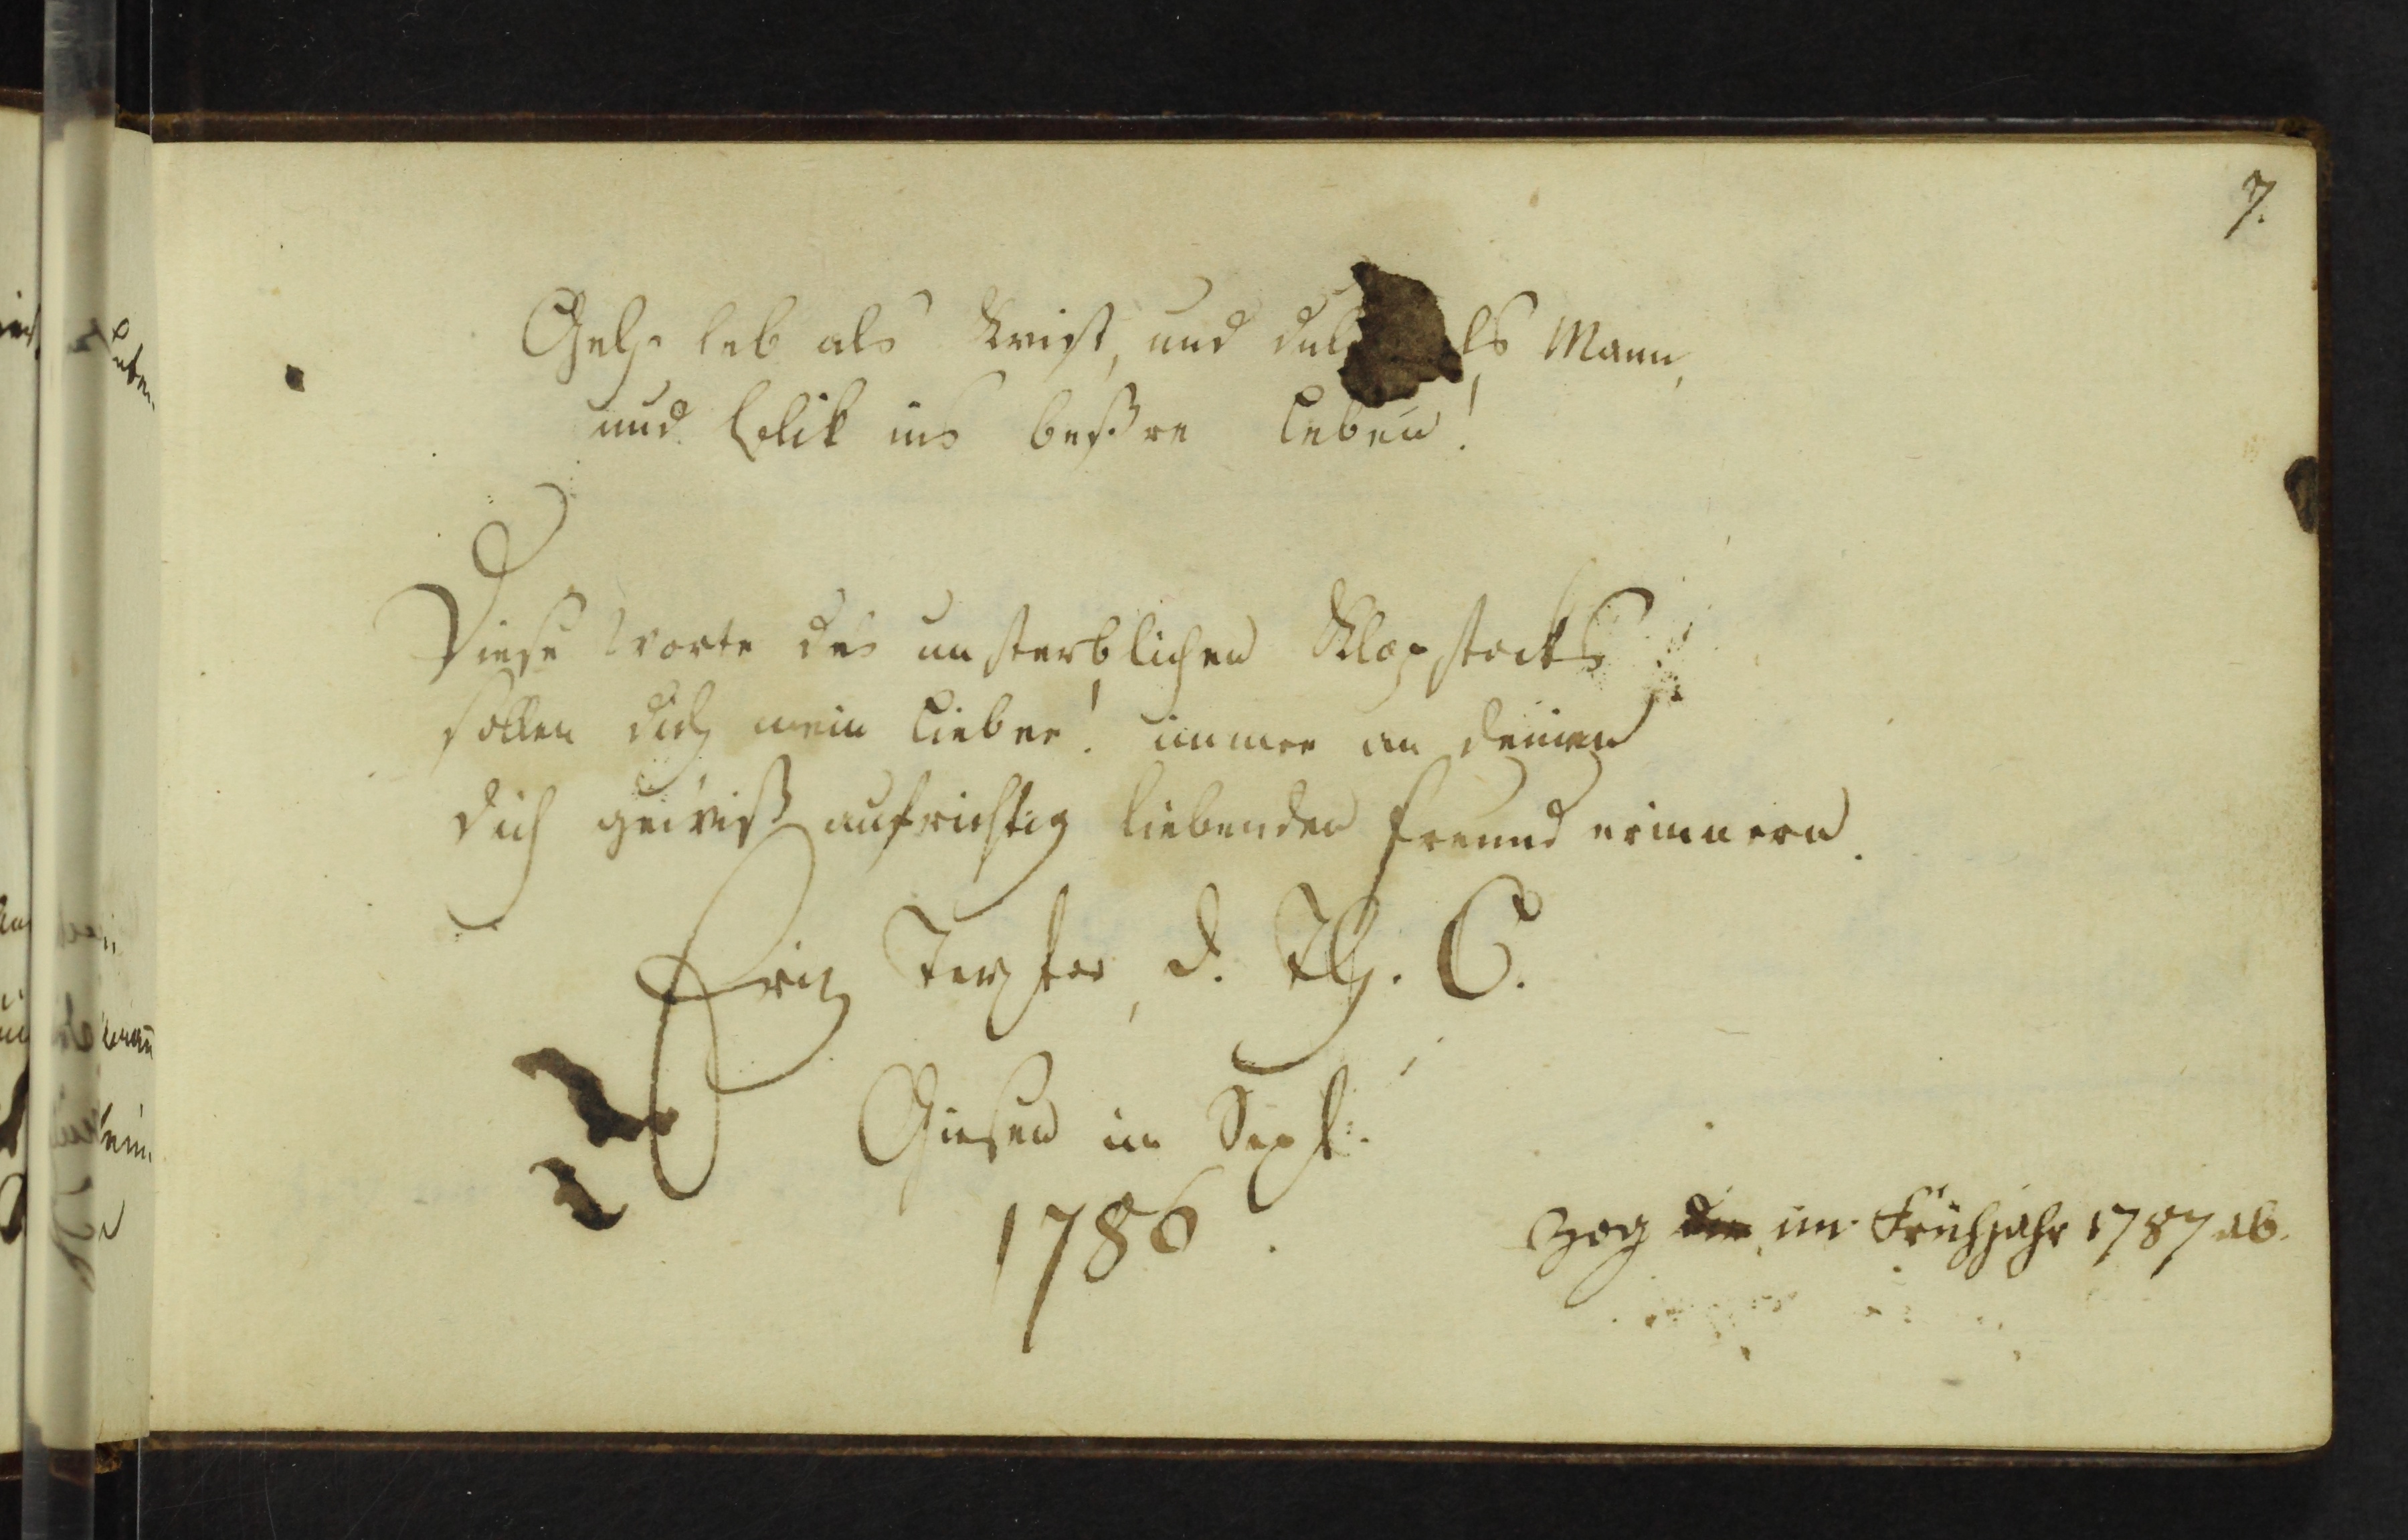 7.
Geh leb als Krist, und als Mann,
und blik ins beßre Leben!
Diese Worte des unsterblichen Klopstocks
sollen dich mein Lieber! immer an deinen
dich gewiß aufrichtig liebenden Freund erinnern.
Friz d. Th. C.
Giesen im Sept.
1786.
Zog im Frühjahr 1787 ab.